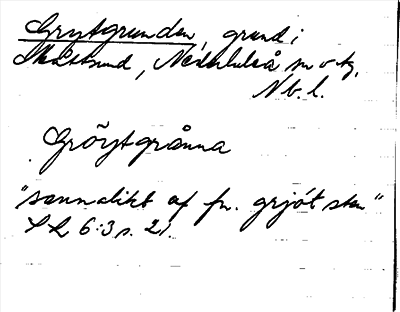 Grytgrunden, grund i
sund, Nederluleå sn o tg,
Nb. l.
Gröytgrånna
"sannolikt af fn. grjót sten"
S L 6:3 s. 21.